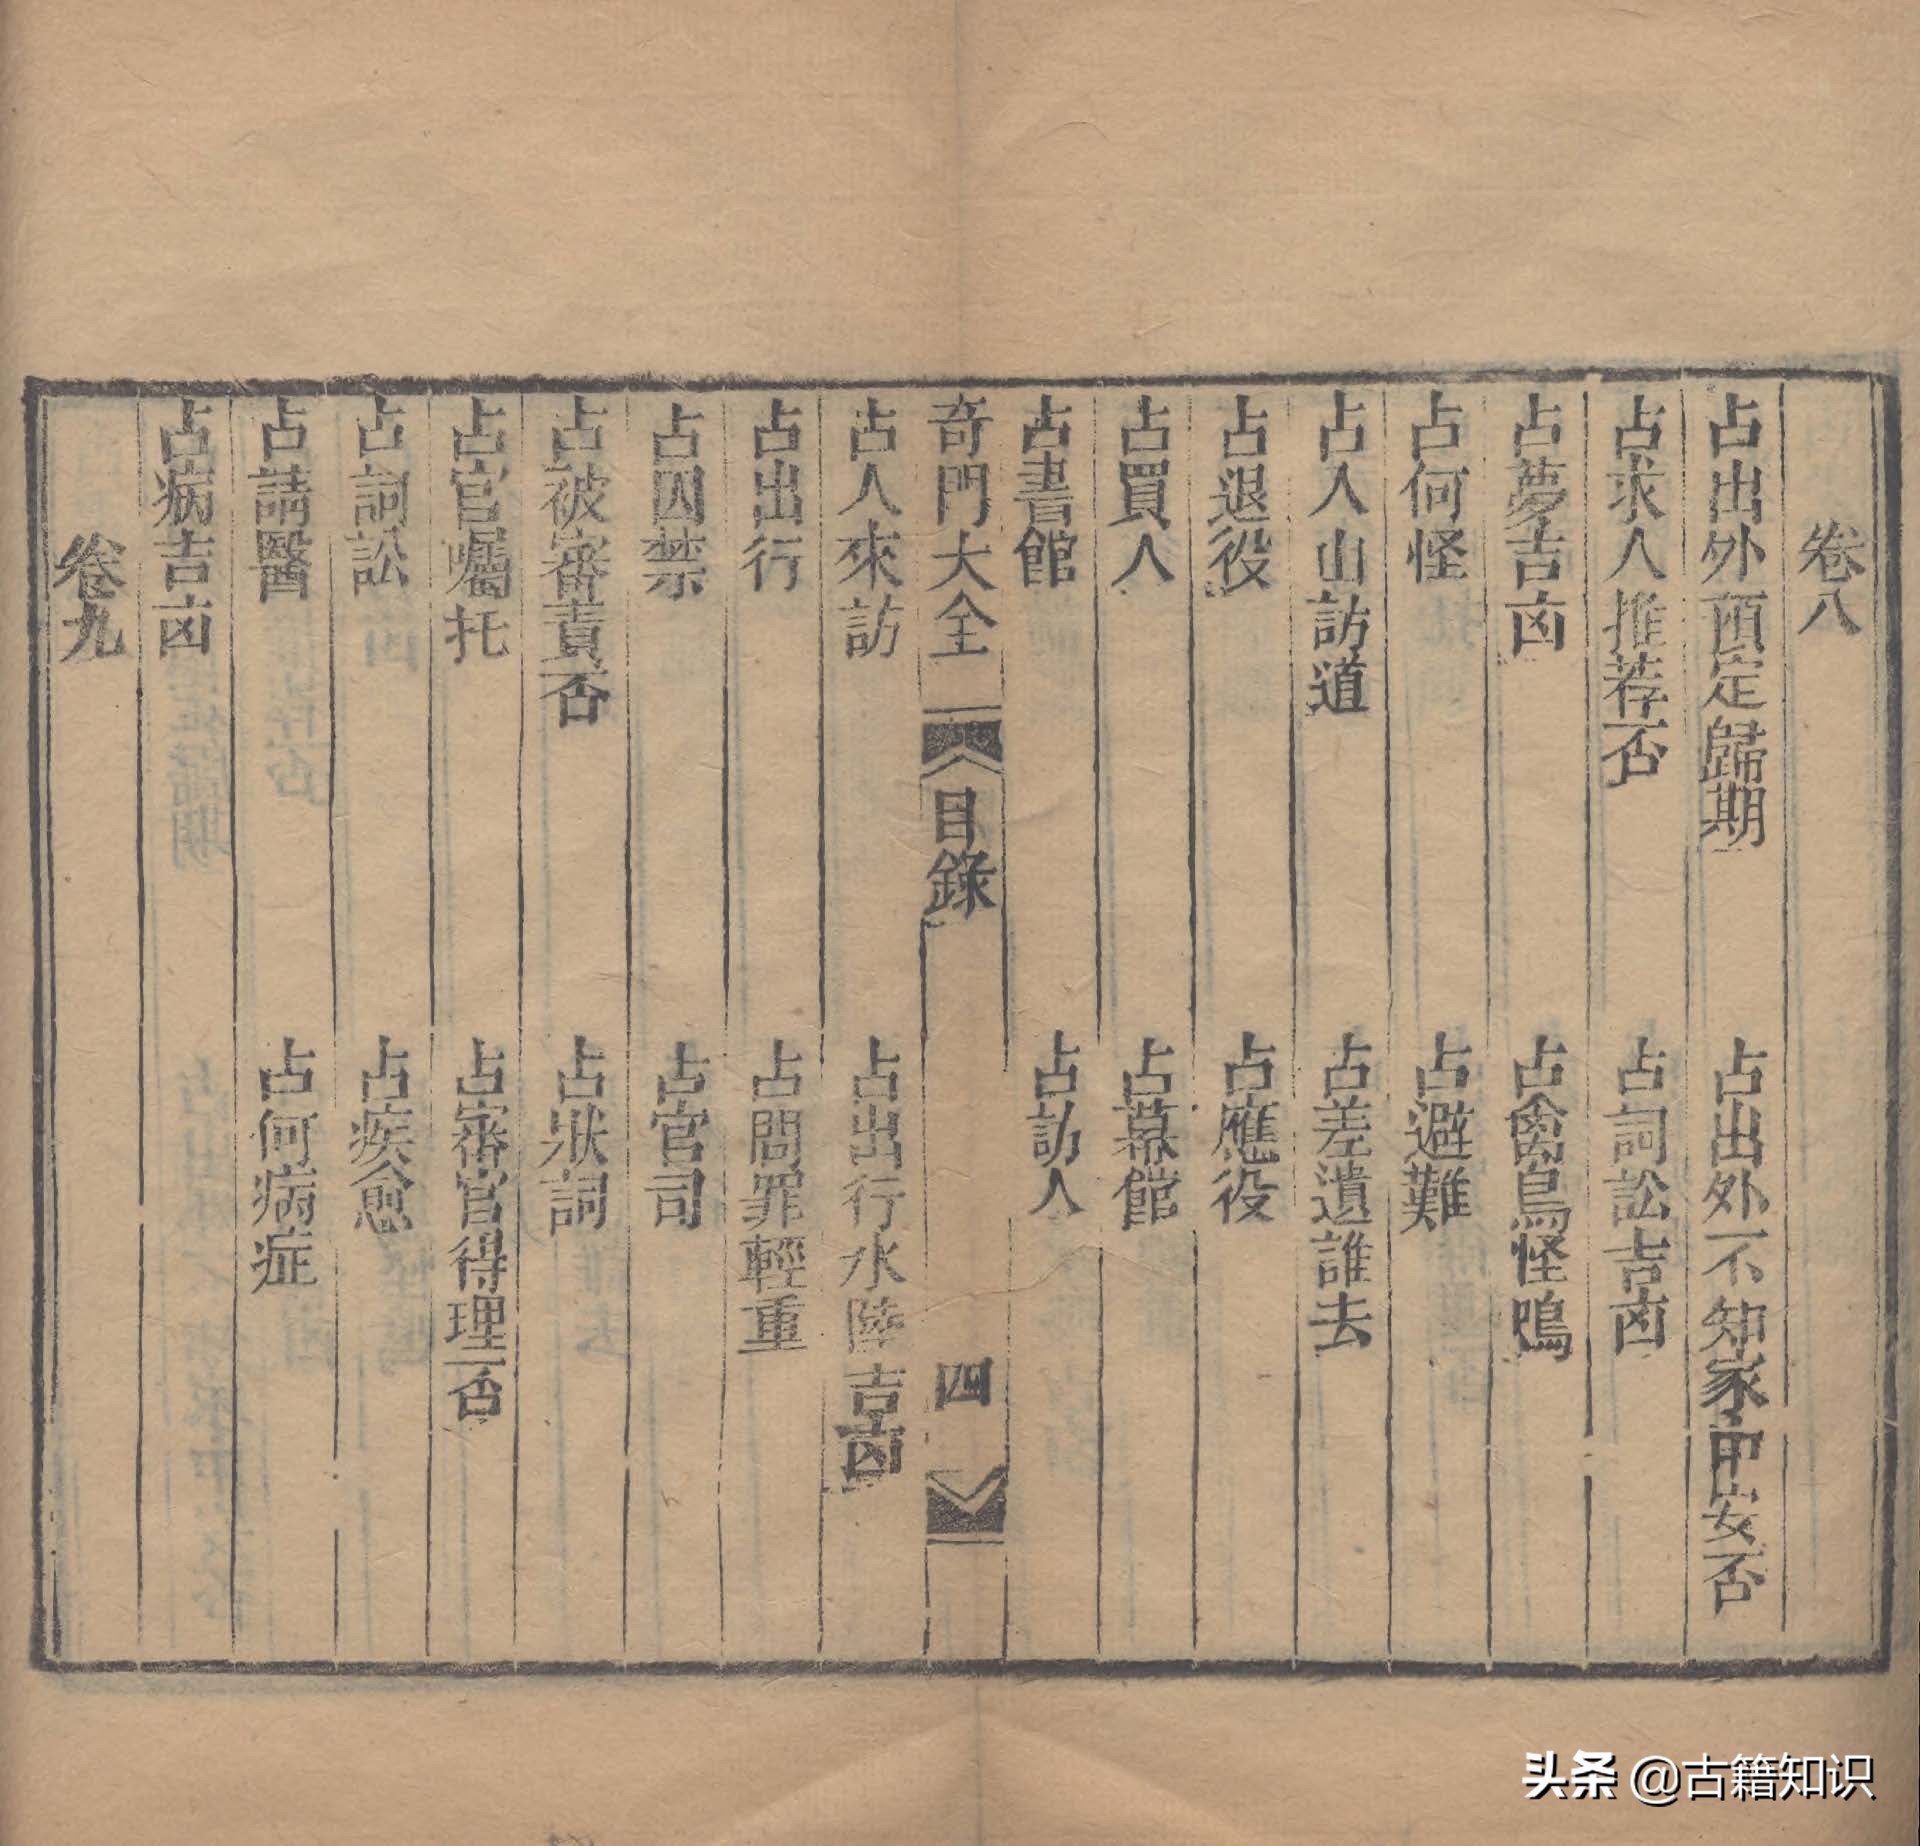 卷八
占出外預定歸期 占出外不知家中安否
占求人推荐否 占詞訟吉凶
占夢吉凶 占禽鳥怪鳴
占何怪 占避難
占入山訪道 占差遺誰去
占退役 占應役
占買人 占幕館
占書館 占訪人
奇門大全 目錄 四
占人來訪 占出行水陸吉凶
占出行 占問罪輕重
占囚禁 占官司
占被審責否 占狀詞
占官囑托 占審官得理否
占詞訟 占疾愈
占請醫 占何病症
占病吉凶
卷九
头条 @古籍知识